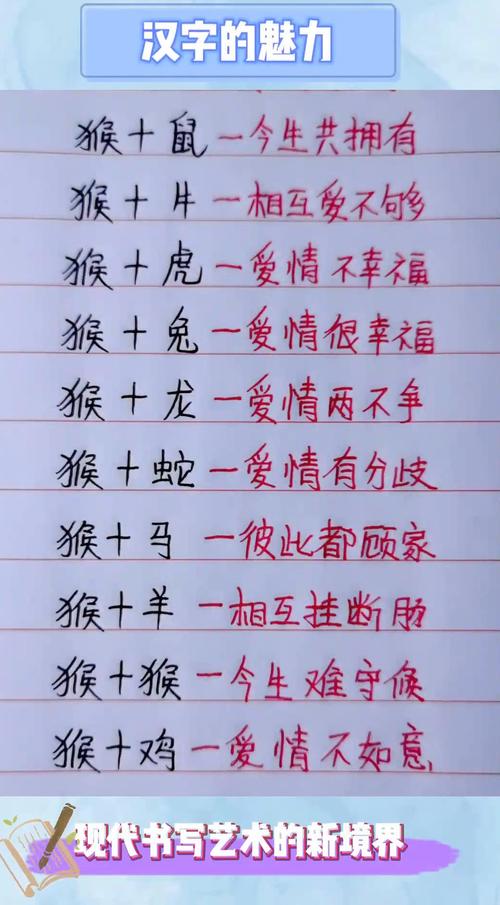 汉字的魅力
猴+鼠—今生共拥有
猴+牛—相互爱不够
猴+虎—爱情不幸福
猴+兔—爱情很幸福
猴+龙—爱情两不争
猴+蛇—爱情有分歧
猴+马—彼此都顾家
猴+羊—相互挂断肠
猴+猴—今生难守候
猴+鸡—爱情不如意
现代书写艺术的新境界